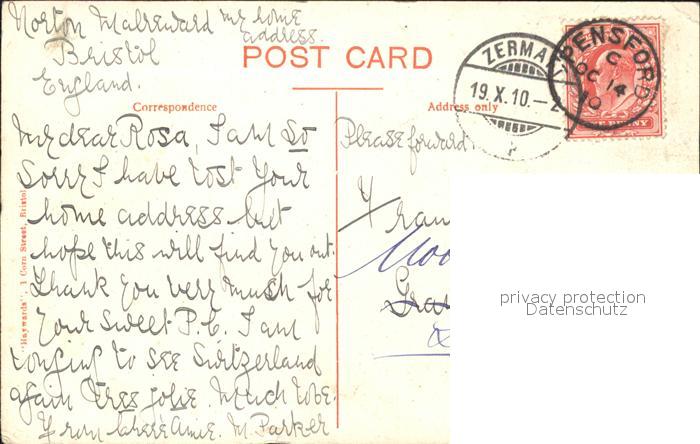 Norton Malreward my home
address.
Bristol
England.
POST CARD
ZERMA
19.X.10.–
PENSFORD
C
OC 14
10
Correspondence
Address only
My dear Rosa, I am so
sorry I have lost your
home address but
hope this will find you out.
Thank you very much for
your sweet P.C. I am
longing to see Switzerland
again Très jolie Much love.
from chère Amie. M. Parker
Please forward
"Haywards", 1 Corn Street, Bristol
Frau
Moo
Gra
privacy protection
Datenschutz